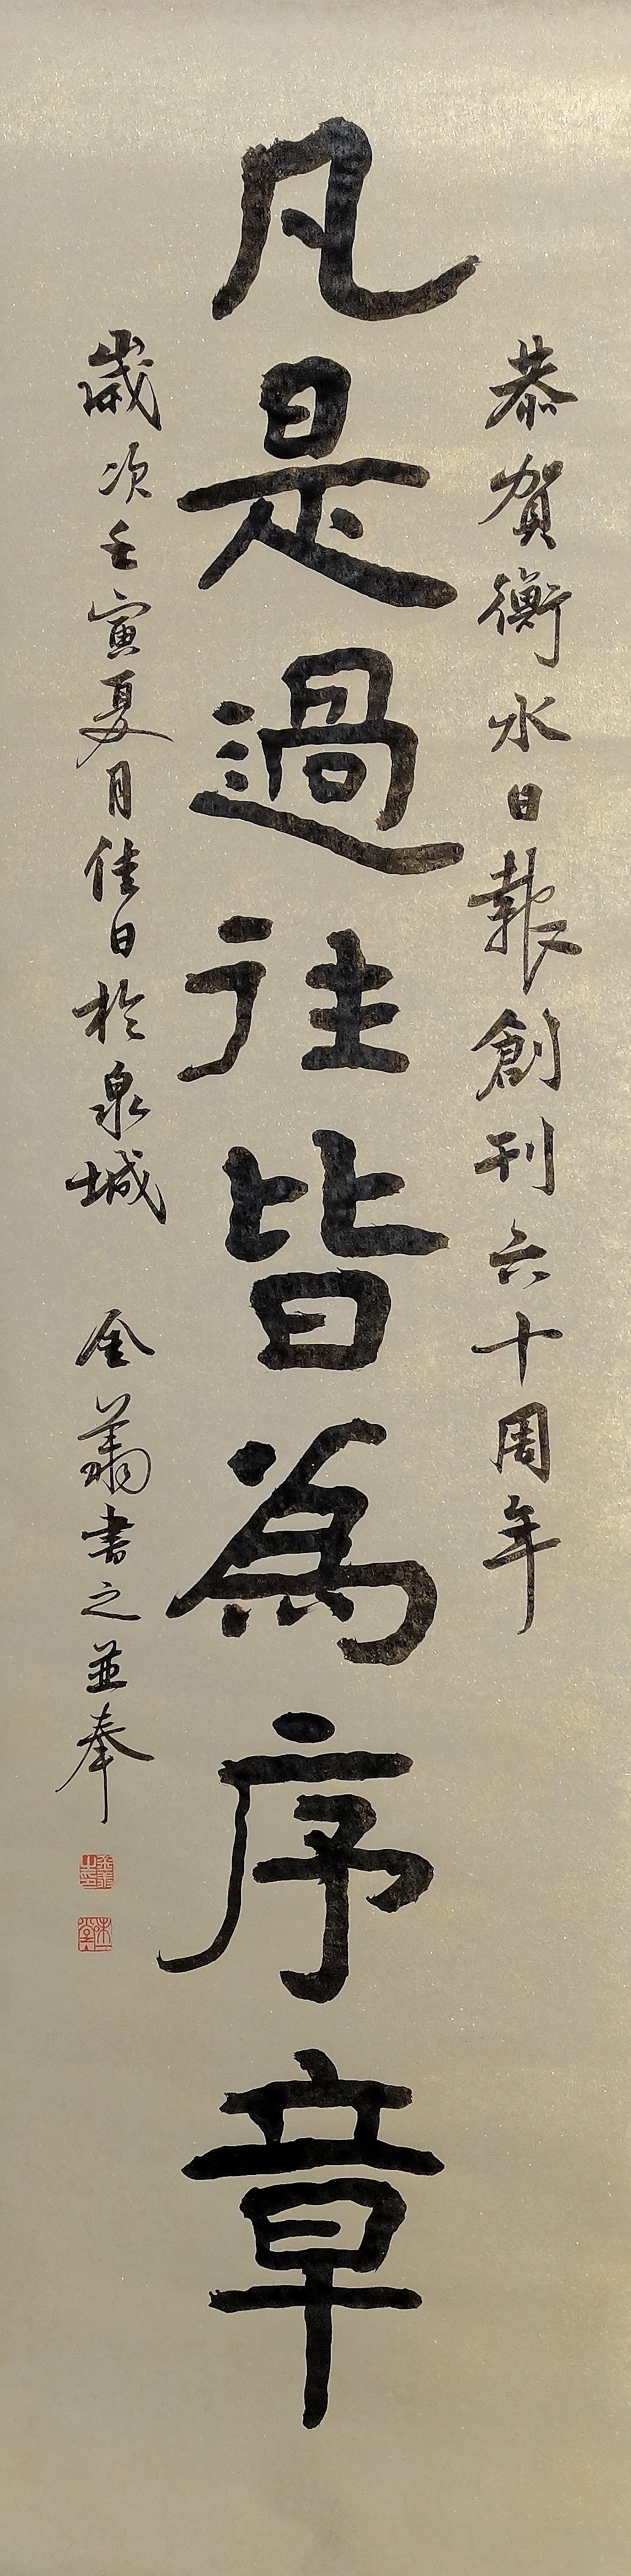 恭賀衡水日報創刊六十周年
凡是過往皆為序章
歲次壬寅夏月佳日於泉城
金翁書之並奉